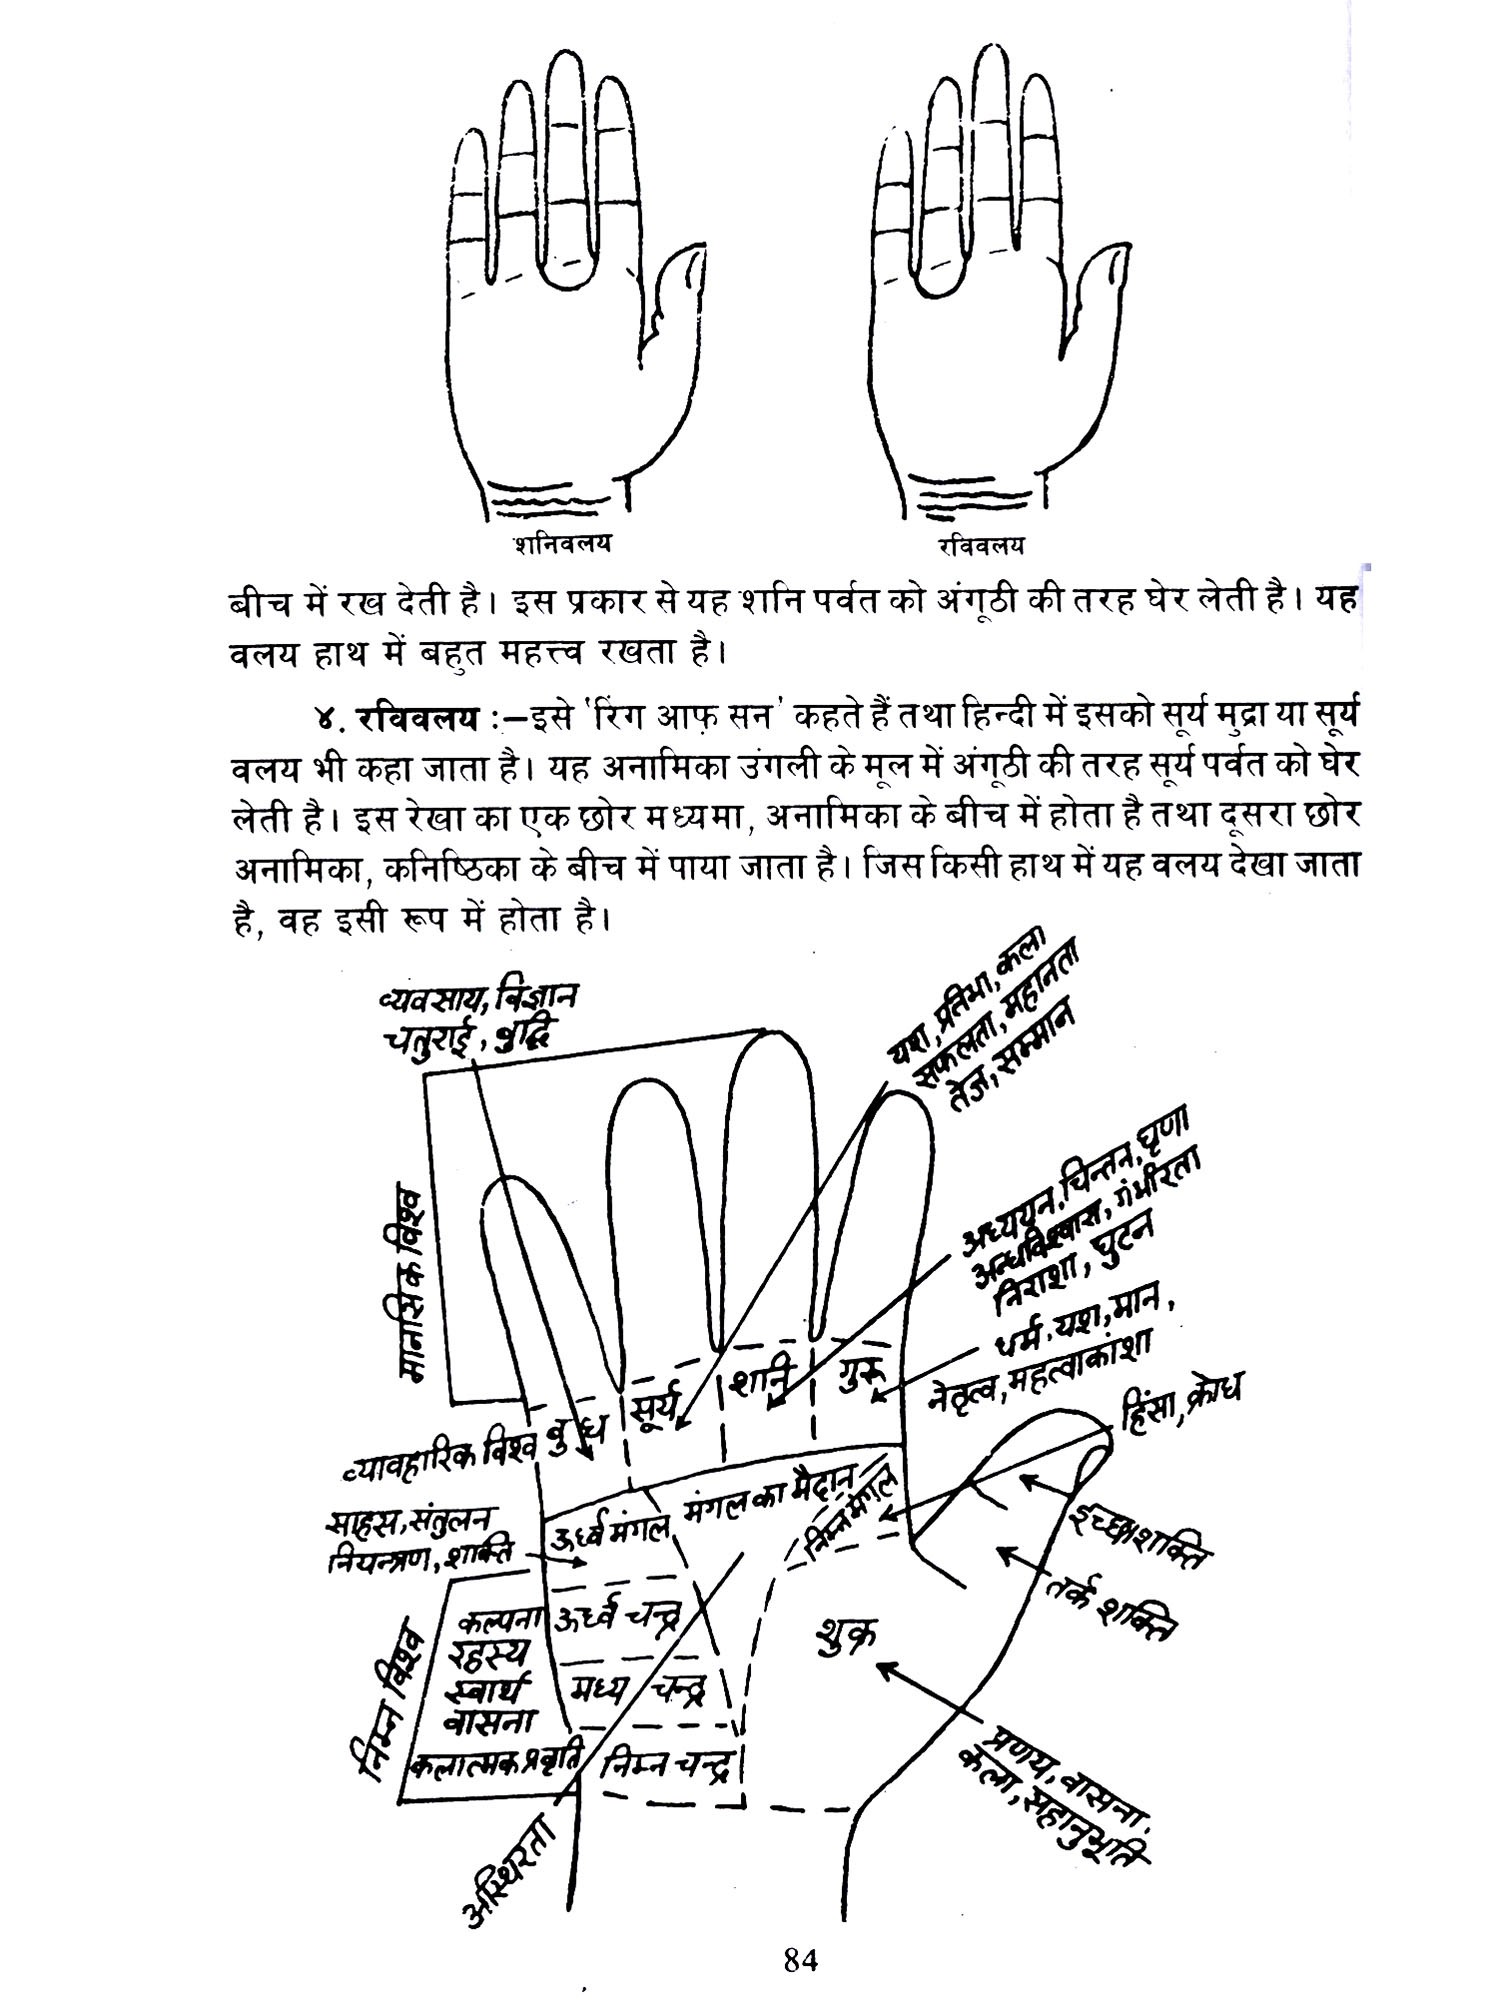 शनिवलय
रविवलय
बीच में रख देती है। इस प्रकार से यह शनि पर्वत को अंगूठी की तरह घेर लेती है। यह
वलय हाथ में बहुत महत्त्व रखता है।
४. रविवलय :—इसे 'रिंग आफ़ सन' कहते हैं तथा हिन्दी में इसको सूर्य मुद्रा या सूर्य
वलय भी कहा जाता है। यह अनामिका उंगली के मूल में अंगूठी की तरह सूर्य पर्वत को घेर
लेती है। इस रेखा का एक छोर मध्यमा, अनामिका के बीच में होता है तथा दूसरा छोर
अनामिका, कनिष्ठिका के बीच में पाया जाता है। जिस किसी हाथ में यह वलय देखा जाता
है, वह इसी रूप में होता है।
व्यवसाय, विज्ञान
चतुराई, बुद्धि
यश, प्रतिभा, कला
सफलता, महानता
तेज, सम्मान
मानसिक विश्व
अध्ययन, चिन्तन, घृणा
अन्धविश्वास, गंभीरता
निराशा, घुटन
धर्म, यश, मान,
नेतृत्व, महत्वाकांशा
हिंसा, क्रोध
व्यावहारिक विश्व
बुध
सूर्य
शनि
गुरू
साहस, संतुलन
नियन्त्रण, शक्ति
ऊर्ध्व मंगल
मंगल का मैदान
निम्न मंगल
इच्छाशक्ति
तर्क शक्ति
निम्न विश्व
कल्पना
रहस्य
स्वार्थ
वासना
कलात्मक प्रवृति
ऊर्ध्व चन्द्र
मध्य चन्द्र
निम्न चन्द्र
शुक्र
प्रणय, वासना,
कला, सहानुभूति
अस्थिरता
84